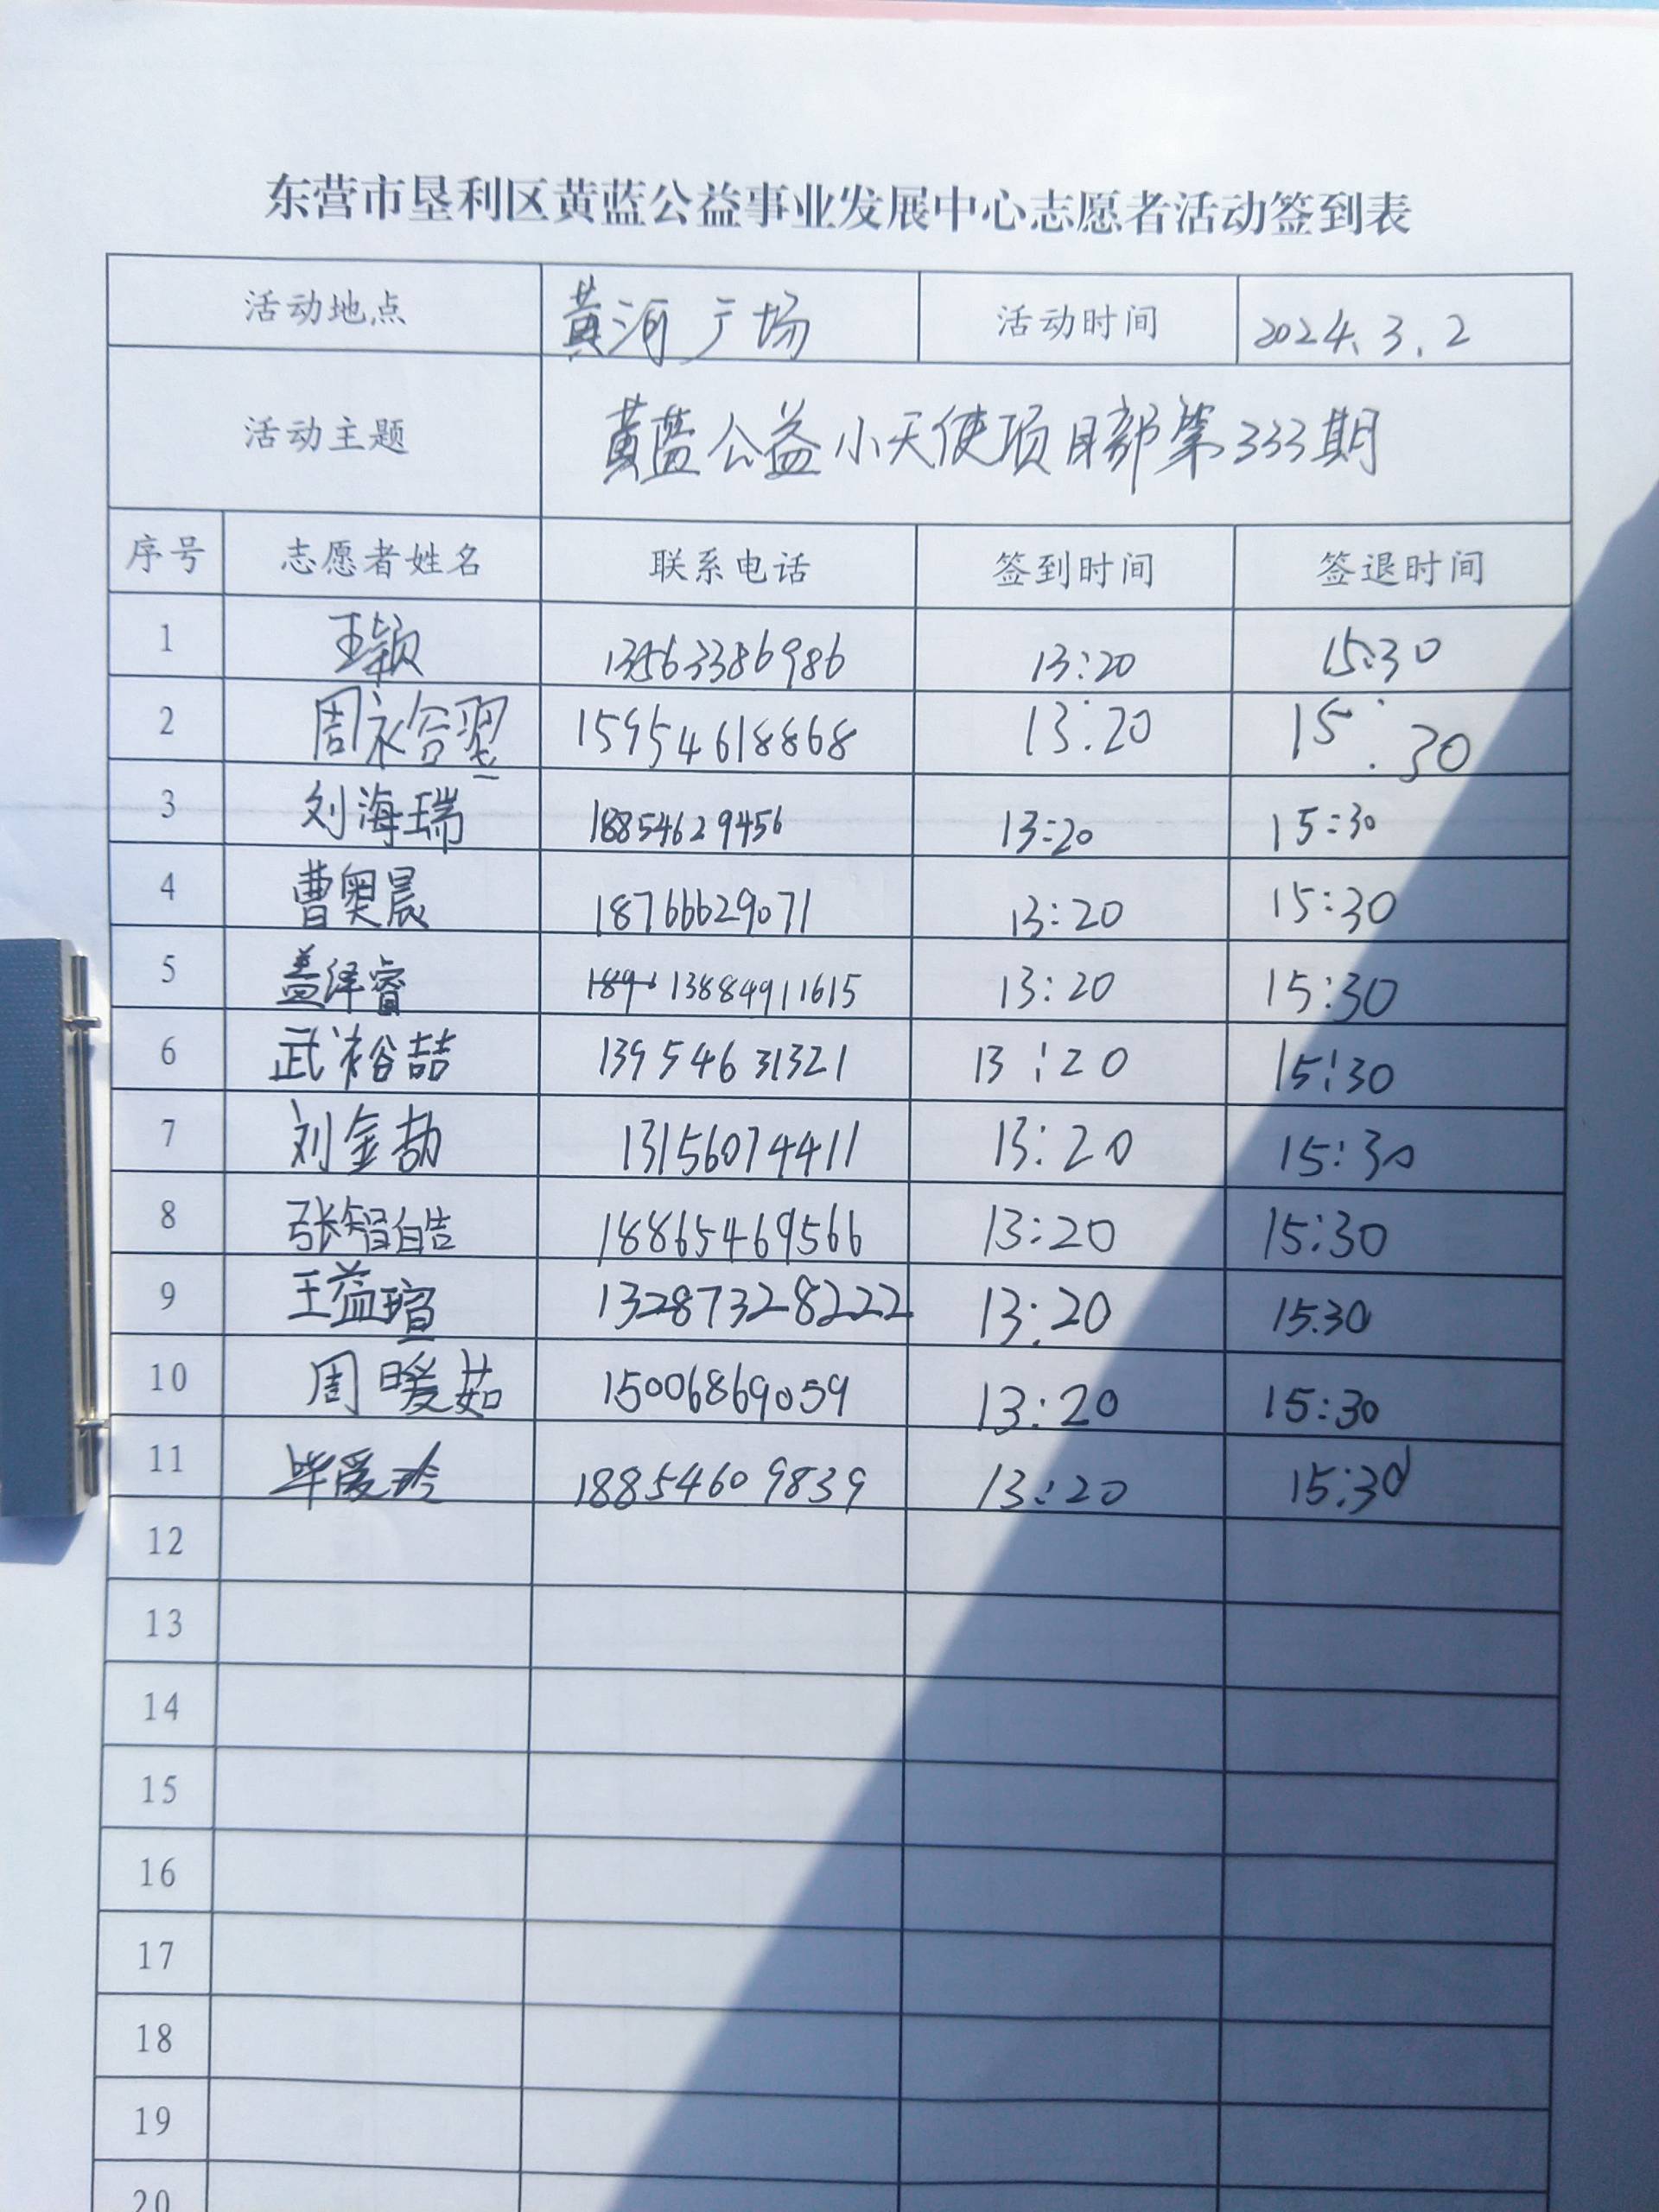 东营市垦利区黄蓝公益事业发展中心志愿者活动签到表
活动地点 黄河广场 活动时间 2024.3.2
活动主题 黄蓝公益小天使项目部第333期
序号 志愿者姓名 联系电话 签到时间 签退时间
1 王颖 13563386986 13:20 15:30
2 周永合 15954618868 13:20 15:30
3 刘海瑞 18854629456 13:20 15:30
4 曹奥晨 18766629071 13:20 15:30
5 盖泽睿 13884911615 13:20 15:30
6 武裕喆 13954631321 13:20 15:30
7 刘金劼 13156074411 13:20 15:30
8 张智皓 18865469566 13:20 15:30
9 王益瑄 13287328222 13:20 15:30
10 周暖茹 15006869059 13:20 15:30
11 毕爱玲 18854609839 13:20 15:30
12
13
14
15
16
17
18
19
20